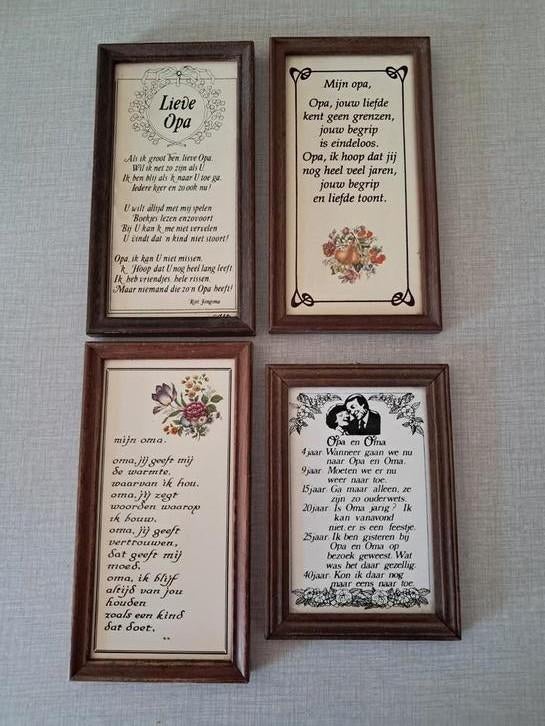 Lieve
Opa
Als ik groot ben, lieve Opa.
Wil ik net zo zijn als U
Ik ben blij als 'k naar U toe ga.
Iedere keer en zo ook nu!
U wilt altijd met mij spelen
Boekjes lezen enzovoort
Bij U kan k me niet vervelen
U vindt dat 'n kind niet stoort!
Opa, ik kan U niet missen.
'k Hoop dat U nog heel lang leeft
Ik heb vriendjes, hele rissen.
Maar niemand die zo'n Opa heeft!
Mijn opa,
Opa, jouw liefde
kent geen grenzen,
jouw begrip
is eindeloos.
Opa, ik hoop dat jij
nog heel veel jaren,
jouw begrip
en liefde toont.
mijn oma.
oma, jij geeft mij
de warmte,
waarvan ik hou.
oma, jij zegt
woorden waarop
ik bouw.
oma, jij geeft
vertrouwen,
dat geeft mij
moed.
oma, ik blijf
altijd van jou
houden
zoals een kind
dat doet.
Opa en Oma
4 jaar Wanneer gaan we nu
naar Opa en Oma.
9 jaar Moeten we er nu
weer naar toe.
15 jaar Ga maar alleen, ze
zijn zo ouderwets.
20 jaar Is Oma jarig? Ik
kan vanavond
niet, er is een feestje.
25 jaar Ik ben gisteren bij
Opa en Oma op
bezoek geweest. Wat
was het daar gezellig.
40 jaar Kon ik daar nog
maar eens naar toe.